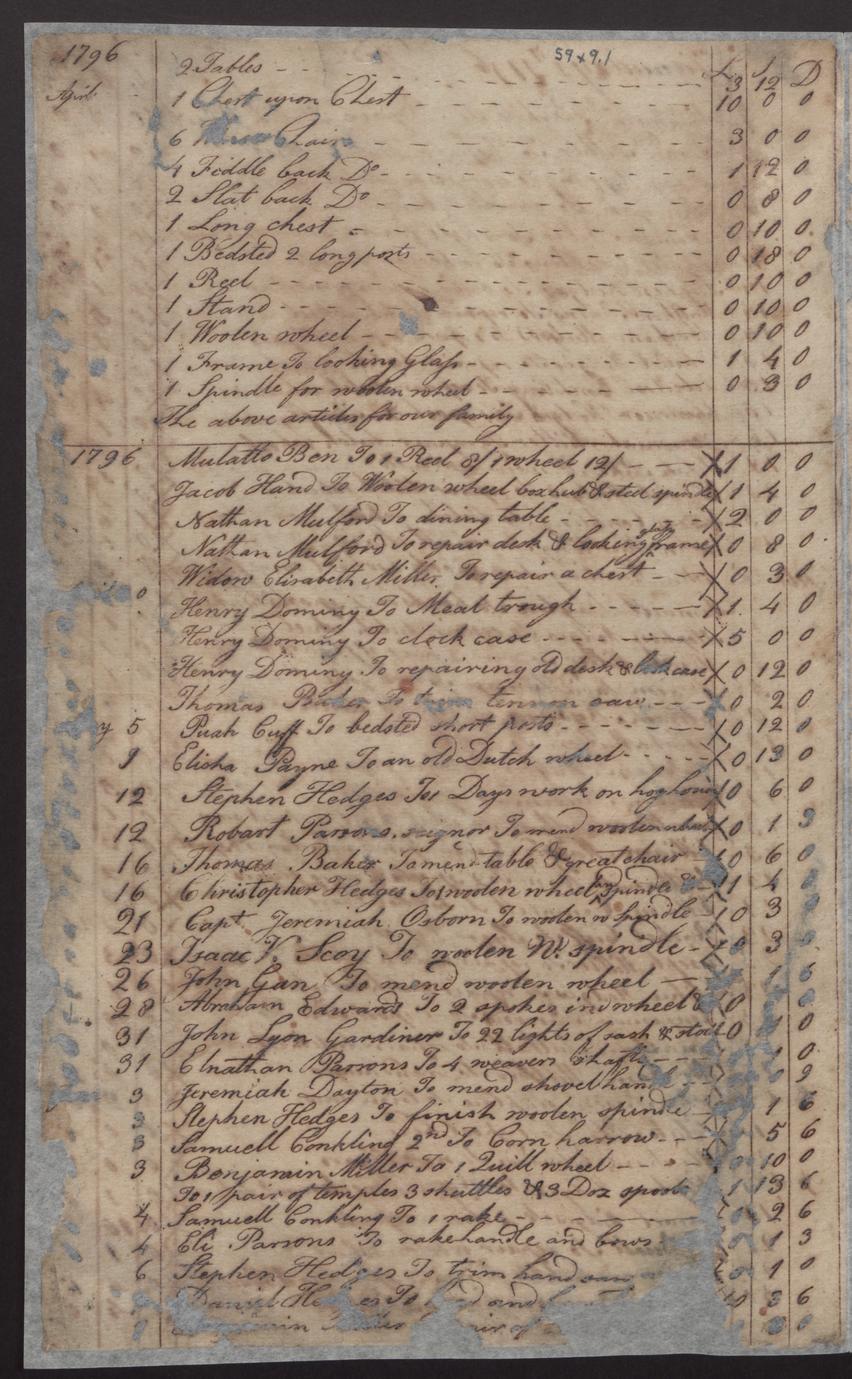 1796
59x9.1
£ S D
2 Tables - - 3 12
April 1 Chest upon Chest 10 0 0
6 Chairs 3 0 0
4 Fiddle back Do 1 12 0
2 Slat back Do 0 8 0
1 Long chest 0 10 0
1 Bedsted 2 long posts 0 18 0
1 Reel 0 10 0
1 Stand 0 10 0
1 Woolen wheel 0 10 0
1 Frame To looking Glass 1 4 0
1 Spindle for woolen wheel 0 3 0
The above articles for our family
1796 Mulatto Ben To 1 Reel 8/ 1 wheel 12/ X 1 0 0
Jacob Hand To Woolen wheel box hub & steel spindle X 1 4 0
Nathan Mulford To dining table X 2 0 0
Nathan Mulford To repair desk & looking glass frame X 0 8 0
Widow Elisabeth Miller To repair a chest X 0 3 0
Henry Dominy To Meal trough X 1 4 0
Henry Dominy To clock case X 5 0 0
Henry Dominy To repairing old desk & case X 0 12 0
Thomas Baker To trim tennon saw X 0 2 0
y 5 Push Cuff To bedsted short posts X 0 12 0
9 Elisha Payne To an old Dutch wheel X 0 13 0
12 Stephen Hedges To 1 Days work on hog house X 0 6 0
12 Robart Parsons, seignor To mend woolen wheel X 0 1 3
16 Thomas Baker To mend table & great chair 0 6 0
16 Christopher Hedges To 1 woolen wheel spindle & 1 4 0
21 Capt Jeremiah Osborn To woolen w spindle X 0 3 0
23 Isaac V. Scoy To woolen W. spindle X 0 3
26 John Gan To mend woolen wheel 1 6
28 Abraham Edwards To 2 spokes in wheel X 0
31 John Lyon Gardiner To 22 lights of sash & 0 1 0
31 Elnathan Parsons To 4 weavers shafts 1 0
3 Jeremiah Dayton To mend shovel hand 0 9
3 Stephen Hedges To finish woolen spindle 1 6
3 Samuell Conkling 2nd To Corn harrow 5 6
3 Benjamin Miller To 1 Quill wheel 0 10 0
To 1 pair of temples 3 shuttles & 3 Doz spools 1 13 6
4 Samuell Conkling To 1 rake 2 6
4 Eli Parsons To rakehandle and bows 1 3
6 Stephen Hedges To trim hand saw 0 1 0
Daniel To and 3 6
of 0